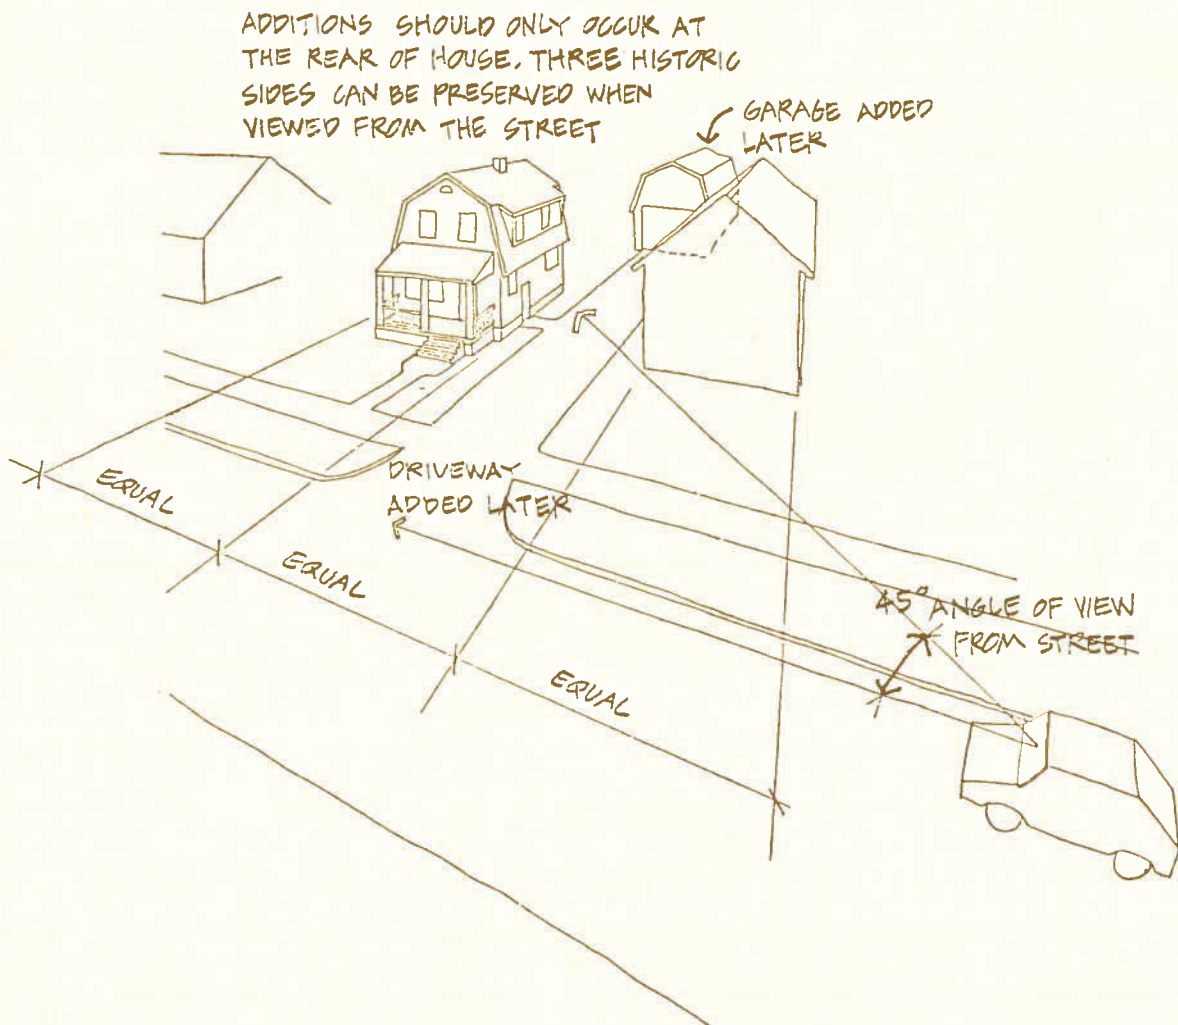 ADDITIONS SHOULD ONLY OCCUR AT
THE REAR OF HOUSE. THREE HISTORIC
SIDES CAN BE PRESERVED WHEN
VIEWED FROM THE STREET
GARAGE ADDED
LATER
DRIVEWAY
ADDED LATER
EQUAL
EQUAL
EQUAL
45° ANGLE OF VIEW
FROM STREET